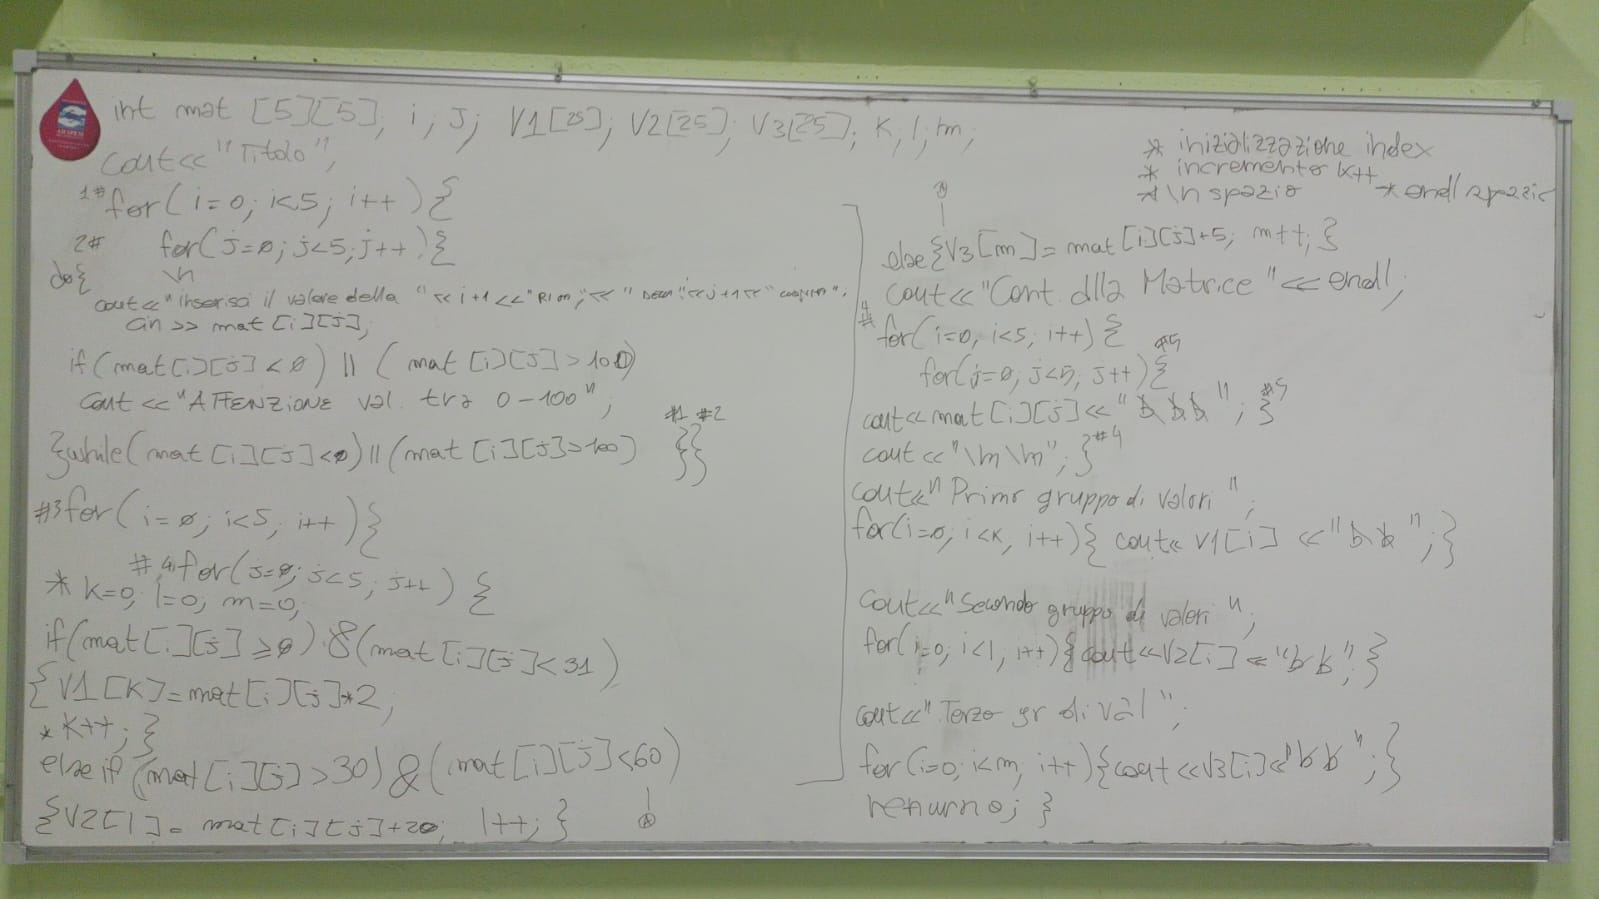 int mat [5][5], i, J; V1[25]; V2[25]; V3[25]; K, l, m;
cout<< "Titolo";
1# for( i=0; i<5; i++ ) {
2# for( j=0; j<5; j++ ){
do{ \n
cout<<"Inserisci il valore della "<<i+1<<
cin >> mat [i][j];
if( mat[i][j] <0 ) || ( mat [i][j] > 100)
cout << "ATTENZIONE val. tra 0-100";
}while( mat [i][j]<0)||(mat[i][j]>100) #1 #2 }}
#3 for( i=0; i<5, i++ ){
#4 for( j=0; j<5; j++ ) {
* k=0; l=0; m=0;
if(mat[i][j] ⩾0) & (mat[i][j]<31)
{ V1 [K]=mat[i][j]*2;
* K++; }
else if (mat[i][j] >30) & (mat[i][j]<60)
{V2[l]= mat[i][j]+20; l++; } A
* inizializzazione index
* incremento k++
* \n spazio * endl spazio
A
else{V3[m]= mat[i][j]+5; m++; }
cout<<"Cont. dlla Matrice "<< endl;
4# for(i=0, i<5; i++) {
for(j=0, j<5, j++){ #5
cout<<mat[i][j]<<" b b b "; } #5
cout <<"\n\n"; } #4
cout<<" Primo gruppo di valori ";
for(i=0; i<k, i++){ cout<< V1[i] <<"b b";}
cout<<"Secondo gruppo di valori ";
for(i=0, i<l, i++){cout<<V2[i] <<"b b";}
cout<<" Terzo gr di val ";
for(i=0, i<m, i++){cout<<V3[i]<<"b b";}
return 0; }